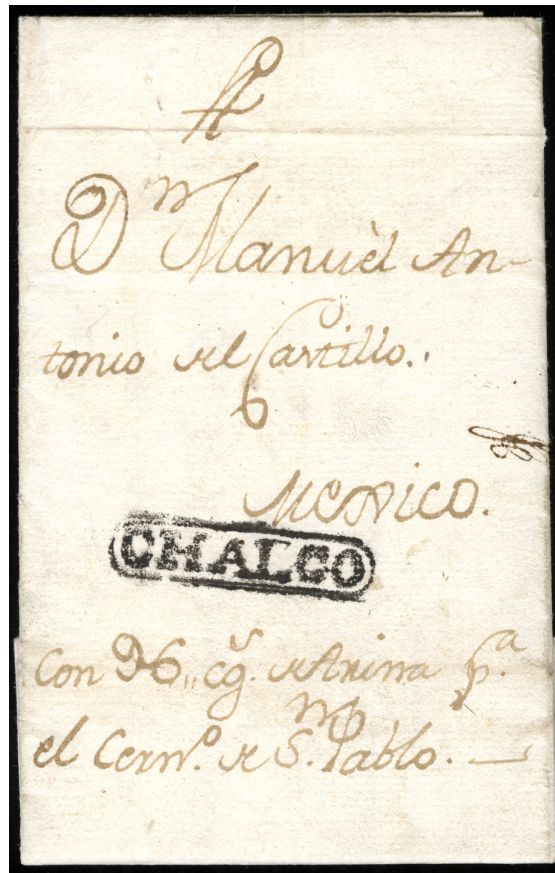 A
Dn Manuèl An-
tonio del Castillo.
Mexico.
CHALCO
Con 96,, cg.s de Arina p.a
el Cern.o de S.n Pablo.